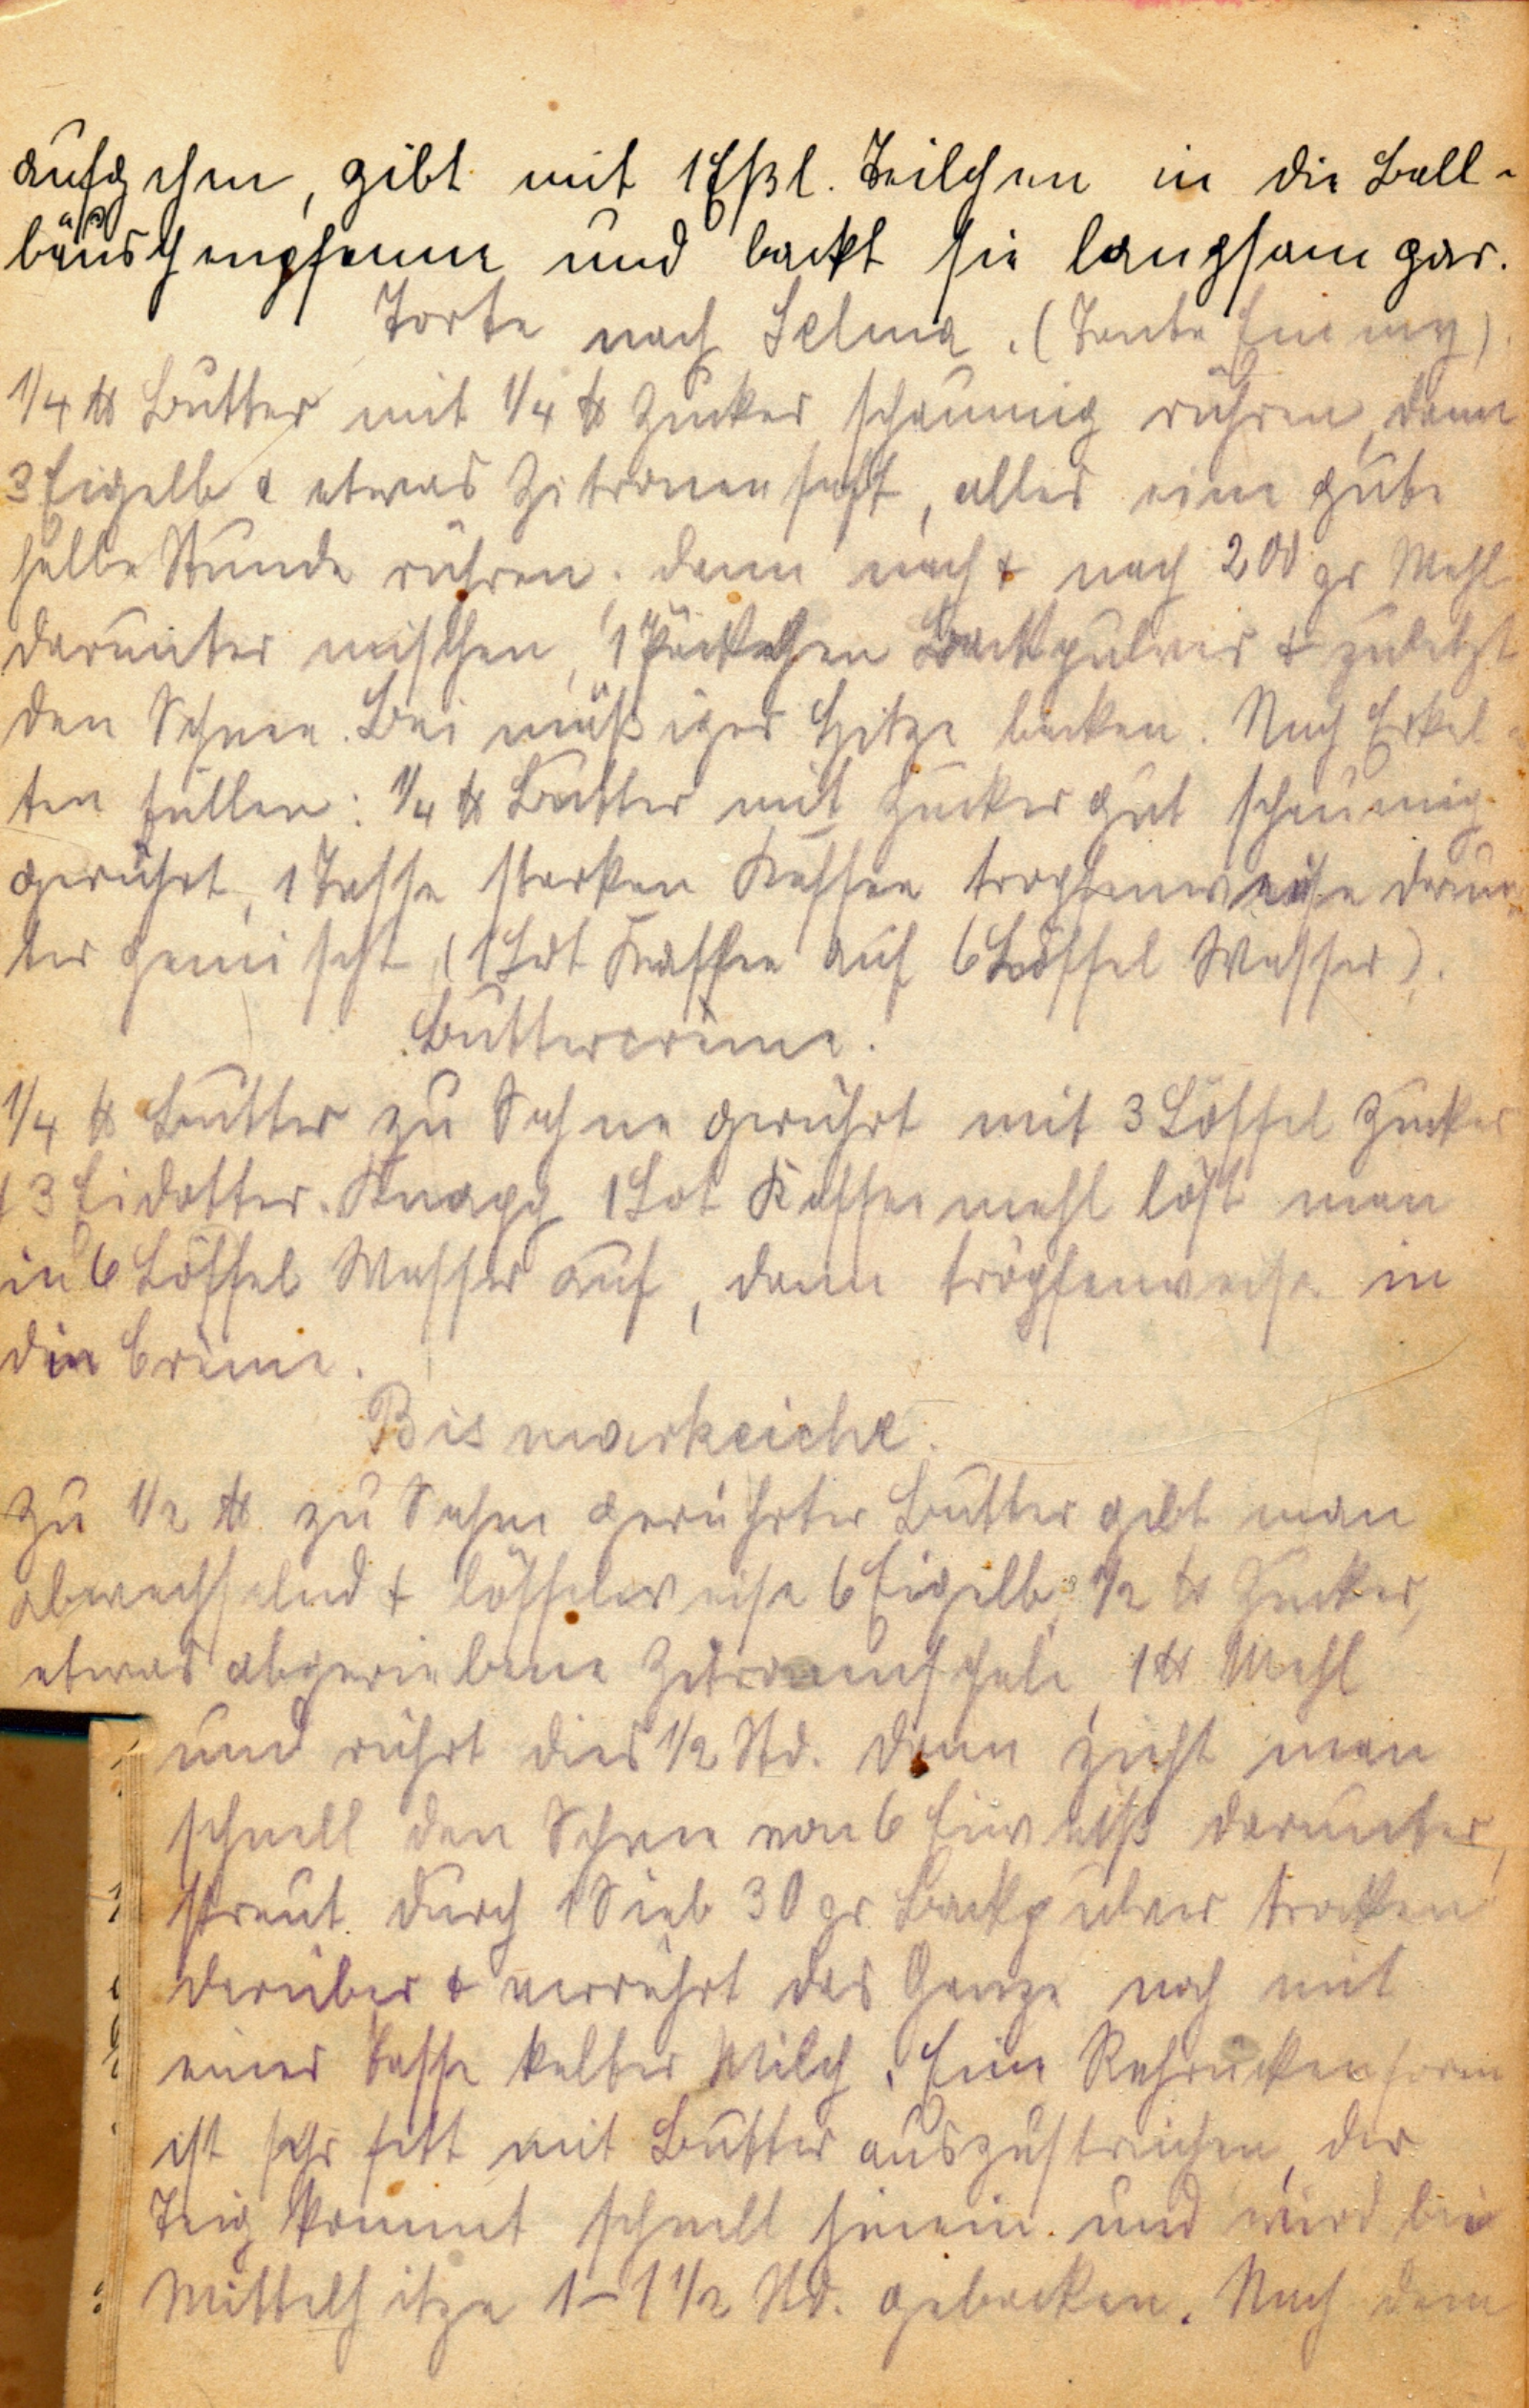 aufgehen, gibt mit 1 Eßl. Teilchen in die Ball-
bäuschenpfanne und backt sie langsam gar.
Torte nach Selma. (Tante Emmy)
1/4 ℔ Butter mit 1/4 ℔ Zucker schaumig rühren, dann
3 Eigelb & etwas Zitronensaft, alles eine gute
halbe Stunde rühren. dann nach & nach 200 gr Mehl
darunter mischen, 1 Päckchen Backpulver & zuletzt
den Schnee. Bei mäßiger Hitze backen. Nach Erkal-
ten füllen: 1/4 ℔ Butter mit Zucker gut schaumig
gerührt, 1 Tasse starken Kaffee tropfenweise darun-
ter gemischt (1 Lot Kaffee auf 6 Löffel Wasser).
Buttercrème.
1/4 ℔ Butter zu Sahne gerührt mit 3 Löffel Zucker
& 3 Eidotter. Knapp 1 Lot Kaffeemehl löst man
in 6 Löffel Wasser auf, dann tropfenweise in
die Crème.
Bismarkeiche.
Zu 1/2 ℔ zu Sahne gerührter Butter gibt man
abwechselnd & löffelweise 6 Eigelb, 1/2 ℔ Zucker,
etwas abgeriebene Zitronenschale, 1 ℔ Mehl
und rührt dies 1/2 Std. dann zieht man
schnell den Schnee von 6 Eiweiß darunter,
streut durch 1 Sieb 30 gr Backpulver trocken
darüber & verrührt das Ganze noch mit
einer Tasse kalter Milch. Eine Rehrückenform
ist sehr fett mit Butter auszustreichen, der
Teig kommt schnell hinein und wird bei
Mittelhitze 1-1 1/2 Std. gebacken. Nach dem